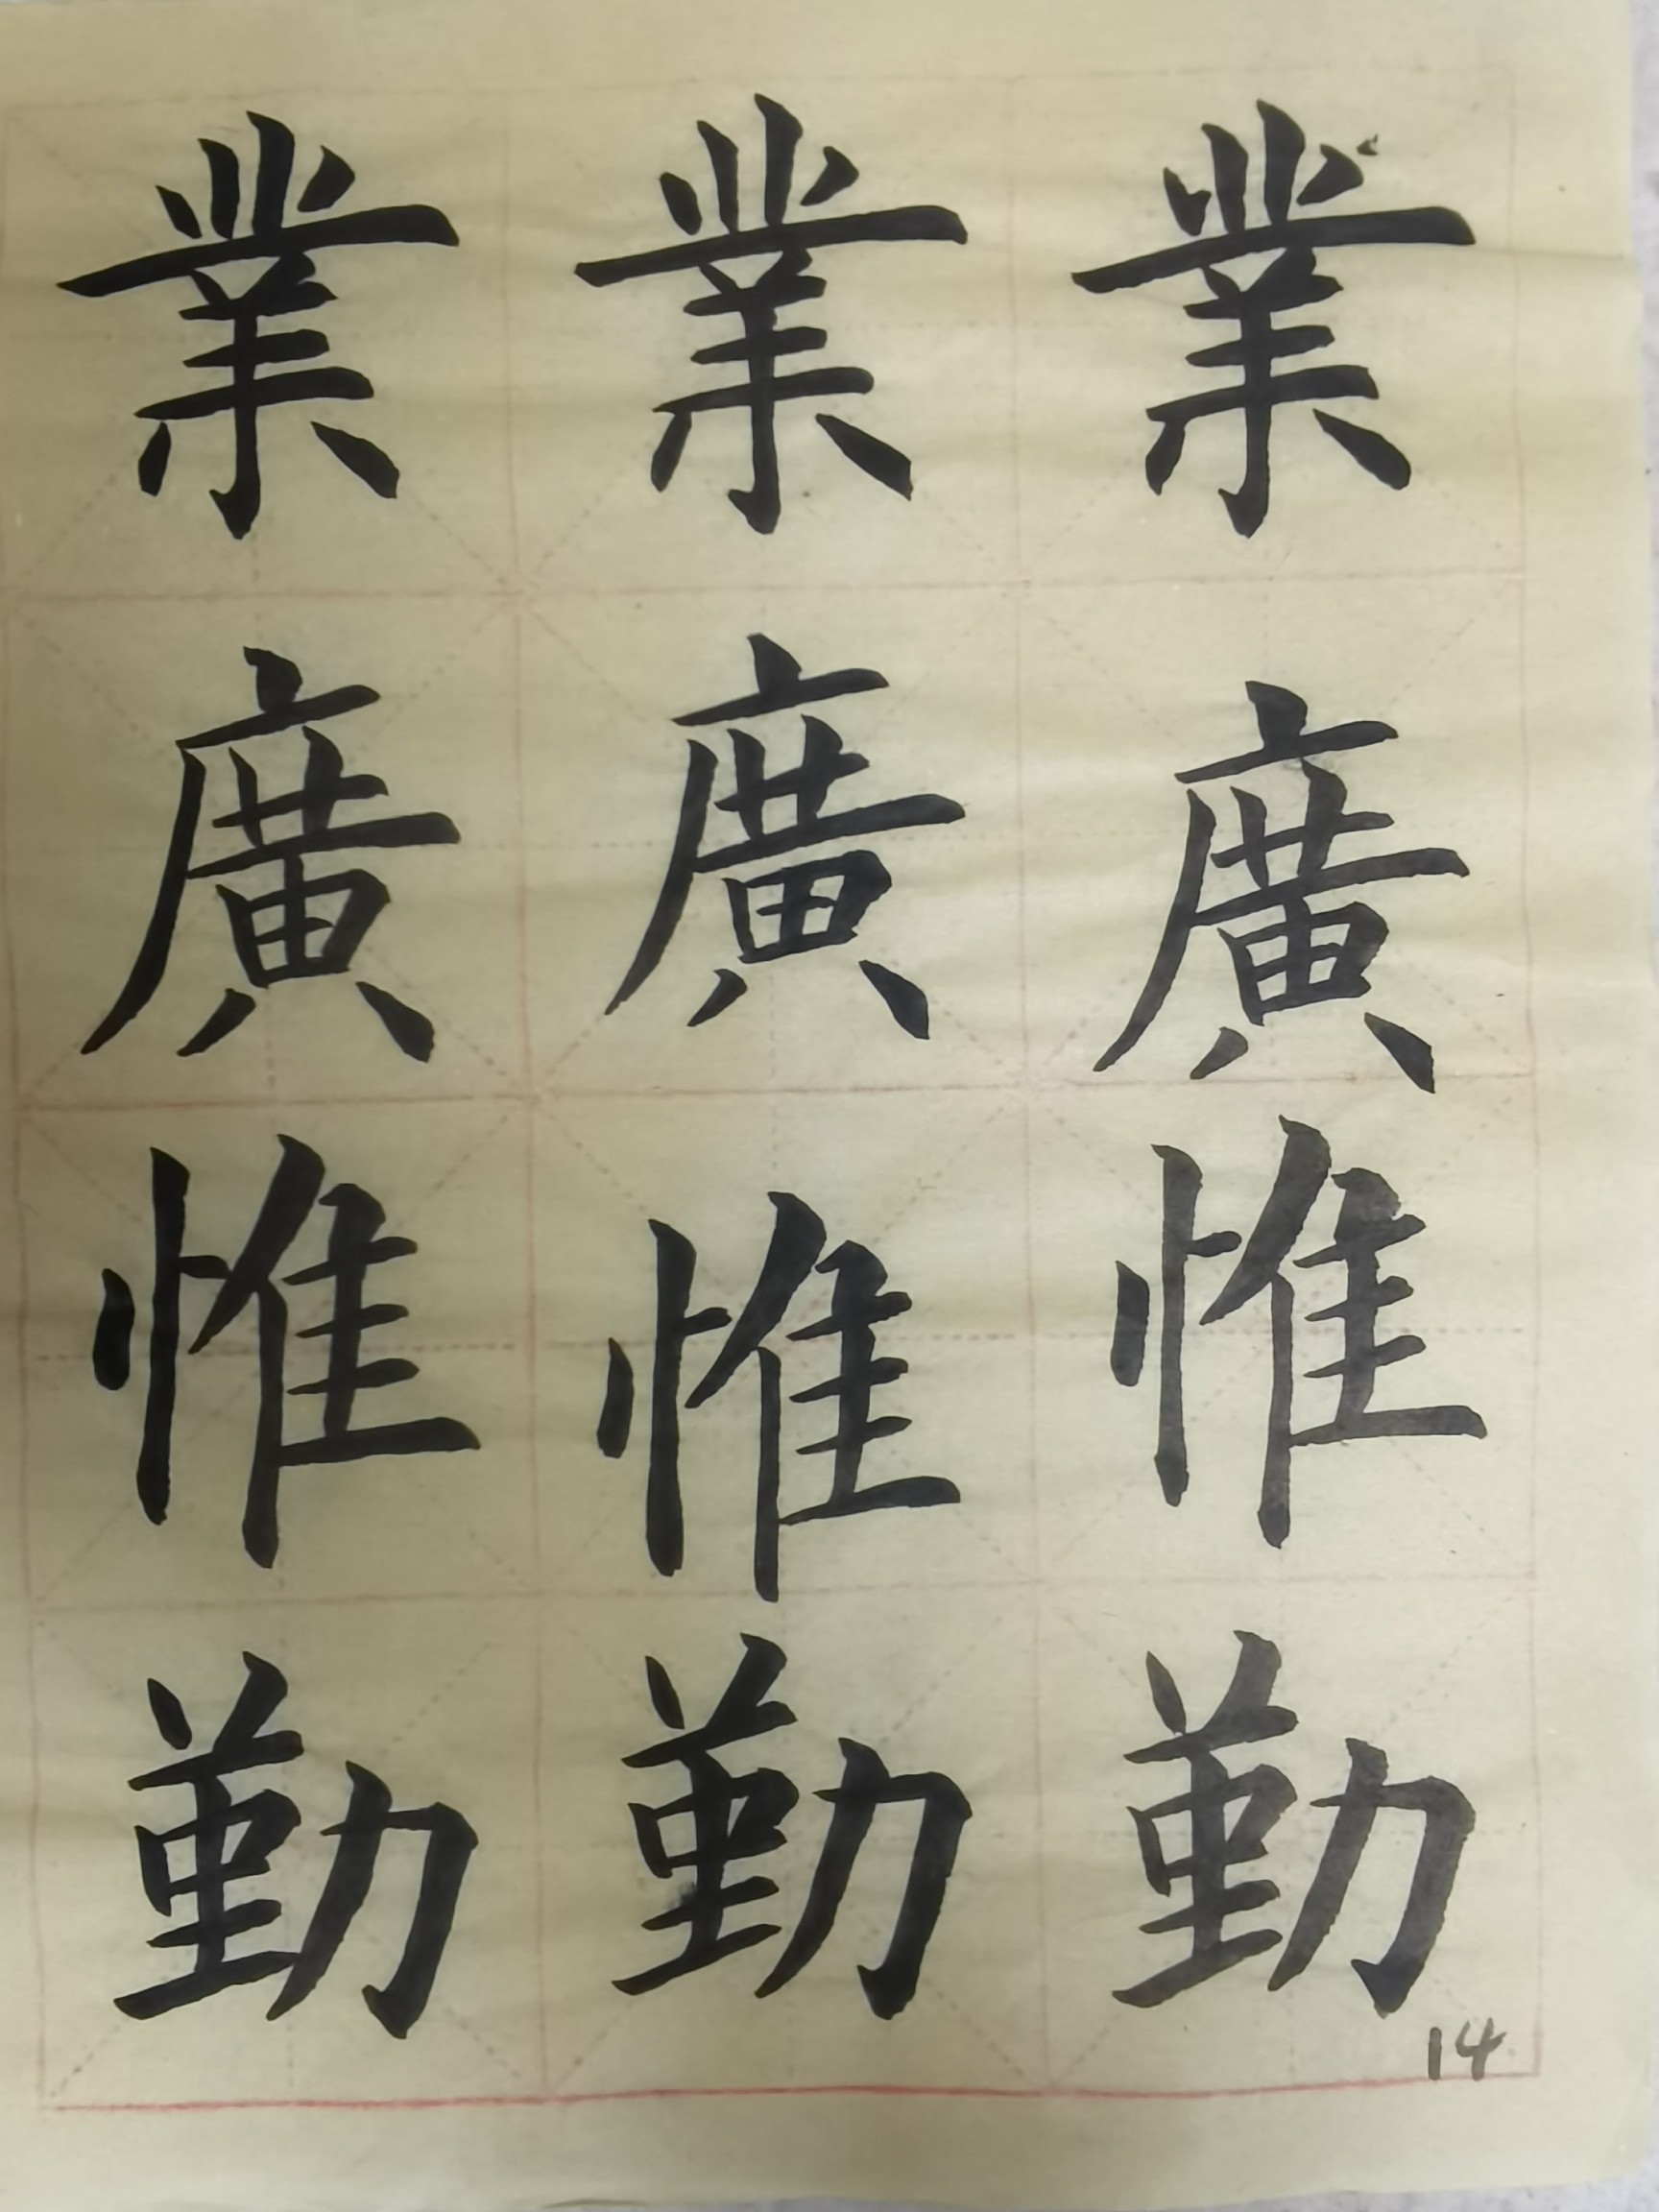 業廣惟勤
業廣惟勤
業廣惟勤
14